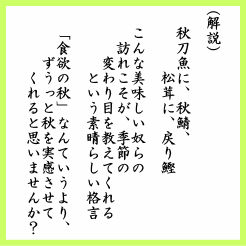 (解説)
秋刀魚に、秋鯖、
松茸に、戻り鰹
こんな美味しい奴らの
訪れこそが、季節の
変わり目を教えてくれる
という素晴らしい格言
「食欲の秋」なんていうより、
ずうっと秋を実感させて
くれると思いませんか?